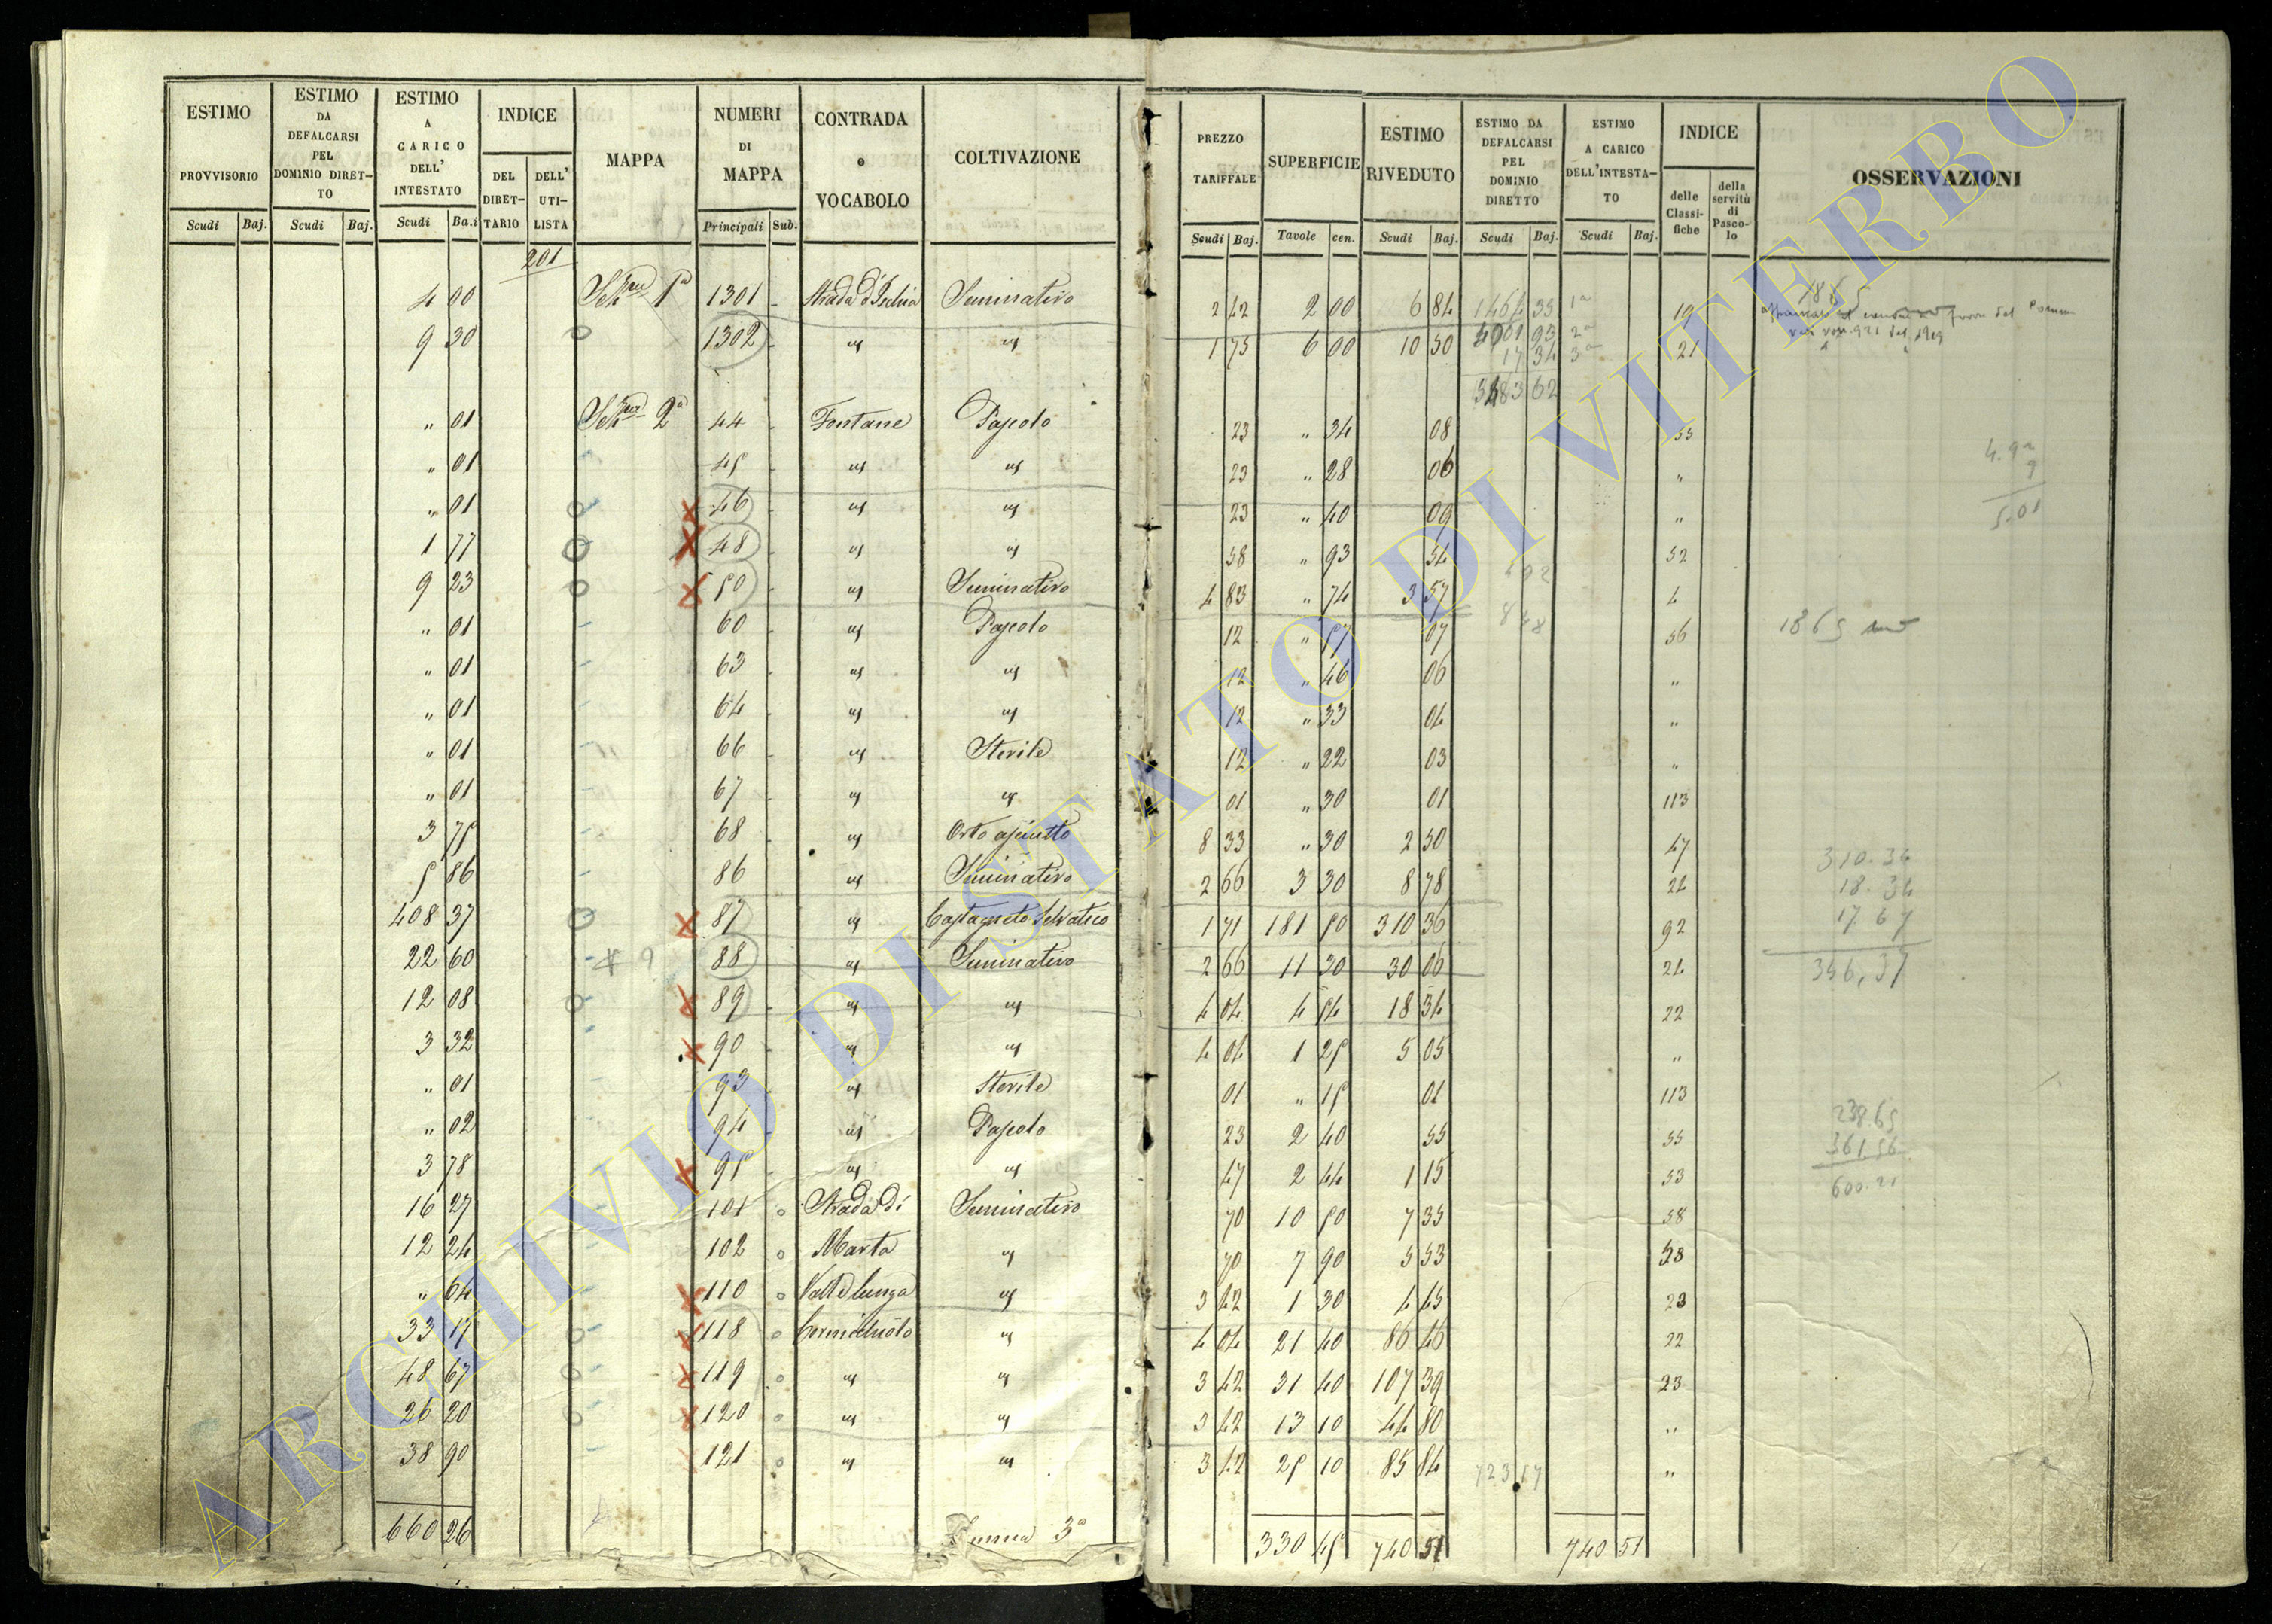 ESTIMO PROVVISORIO | ESTIMO DA DEFALCARSI PEL DOMINIO DIRET-TO | ESTIMO A CARICO DELL' INTESTATO | INDICE | MAPPA | NUMERI DI MAPPA | CONTRADA o VOCABOLO | COLTIVAZIONE | PREZZO TARIFFALE | SUPERFICIE | ESTIMO RIVEDUTO | ESTIMO DA DEFALCARSI PEL DOMINIO DIRETTO | ESTIMO A CARICO DELL'INTESTA-TO | INDICE | OSSERVAZIONI
Scudi | Baj. | Scudi | Baj. | Scudi | Ba.i | DEL DIRET-TARIO | DELL' UTI-LISTA | Principali | Sub. | Scudi | Baj. | Tavole | cen. | Scudi | Baj. | Scudi | Baj. | Scudi | Baj. | delle Classi-fiche | della servitù di Pasco-lo
201
4 00 | 1ª | 1301 | Strada d'Ischia | Seminativo | 2 42 | 2 00 | 6 84 | 1ª | 19 | 1865
9 30 | 1302 | " | " | 1 75 | 6 00 | 10 50 | 2ª | 21
17 34 3ª
" 01 | 2ª | 44 | Fontane | Pascolo | 23 | " 34 | 08 | 55
" 01 | 45 | " | " | 23 | " 28 | 06 | "
" 01 | 46 | " | " | 23 | " 40 | 09 | " | 5.01
1 77 | 48 | " | " | 58 | " 93 | 54 | 52
9 23 | 50 | " | Seminativo | 4 83 | " 74 | 3 57 | 4
" 01 | 60 | " | Pascolo | 12 | " 57 | 07 | 56 | 1865
" 01 | 63 | " | " | 12 | " 46 | 06 | "
" 01 | 64 | " | " | 12 | " 33 | 04 | "
" 01 | 66 | " | Sterile | 12 | " 22 | 03 | "
" 01 | 67 | " | " | 01 | " 30 | 01 | 113
3 75 | 68 | " | Orto asciutto | 8 33 | " 30 | 2 50 | 47
5 86 | 86 | " | Seminativo | 2 66 | 3 30 | 8 78 | 24
408 37 | 87 | " | Castagneto Selvatico | 1 71 | 181 50 | 310 36 | 92
22 60 | 88 | " | Seminativo | 2 66 | 11 30 | 30 06 | 24
12 08 | 89 | " | " | 4 04 | 4 54 | 18 34 | 22
3 32 | 90 | " | " | 4 04 | 1 25 | 5 05 | "
" 01 | 93 | " | Sterile | 01 | " 15 | 01 | 113
" 02 | 94 | " | Pascolo | 23 | 2 40 | 55 | 55
3 78 | 95 | " | " | 47 | 2 44 | 1 15 | 53
16 27 | 101 | Strada di | Seminativo | 70 | 10 50 | 7 35 | 58
12 24 | 102 | Marta | " | 70 | 7 90 | 5 53 | 58
" 64 | 110 | Valle lunga | " | 3 42 | 1 30 | 4 45 | 23
33 17 | 118 | " | 4 04 | 21 40 | 86 46 | 22
48 67 | 119 | " | " | 3 42 | 31 40 | 107 39 | 23
26 20 | 120 | " | " | 3 42 | 13 10 | 44 80 | "
38 90 | 121 | " | " | 3 42 | 25 10 | 85 84 | "
660 26 | Somma 3ª | 330 45 | 740 51 | 740 51
310.36
18.34
17.67
346,37
238.65
361.56
600.21
ARCHIVIO DI STATO DI VITERBO